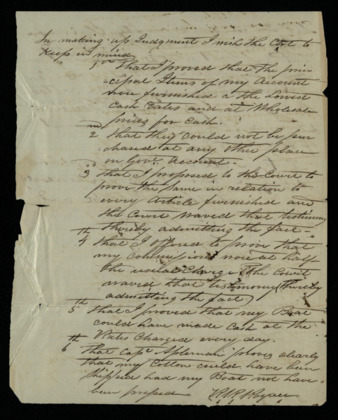 In making up Judgment I wish the Court to
Keep in mind
1st That I proved that the prin-
cipal Items of my Account
were furnished at the Lowest
Cash Rates and at Wholesale
prices for Cash.
2nd that they could not be pur
chased at any other place
on Govt. account.
3 that I proposed to the Court to
prove the same in relation to
every Article furnished and
the Court waved that testimony
thereby admitting the fact.
4th that I offered to prove that
my Commissions were at half
the usual charge (the Court
waved that testimony thereby
admitting the fact)
5th that I proved that my Boat
could have made Cash at the
Rates Charged every day.
6th that Capt. proves clearly
that my Cotton could have been
shipped had my Boat not have
been pressed